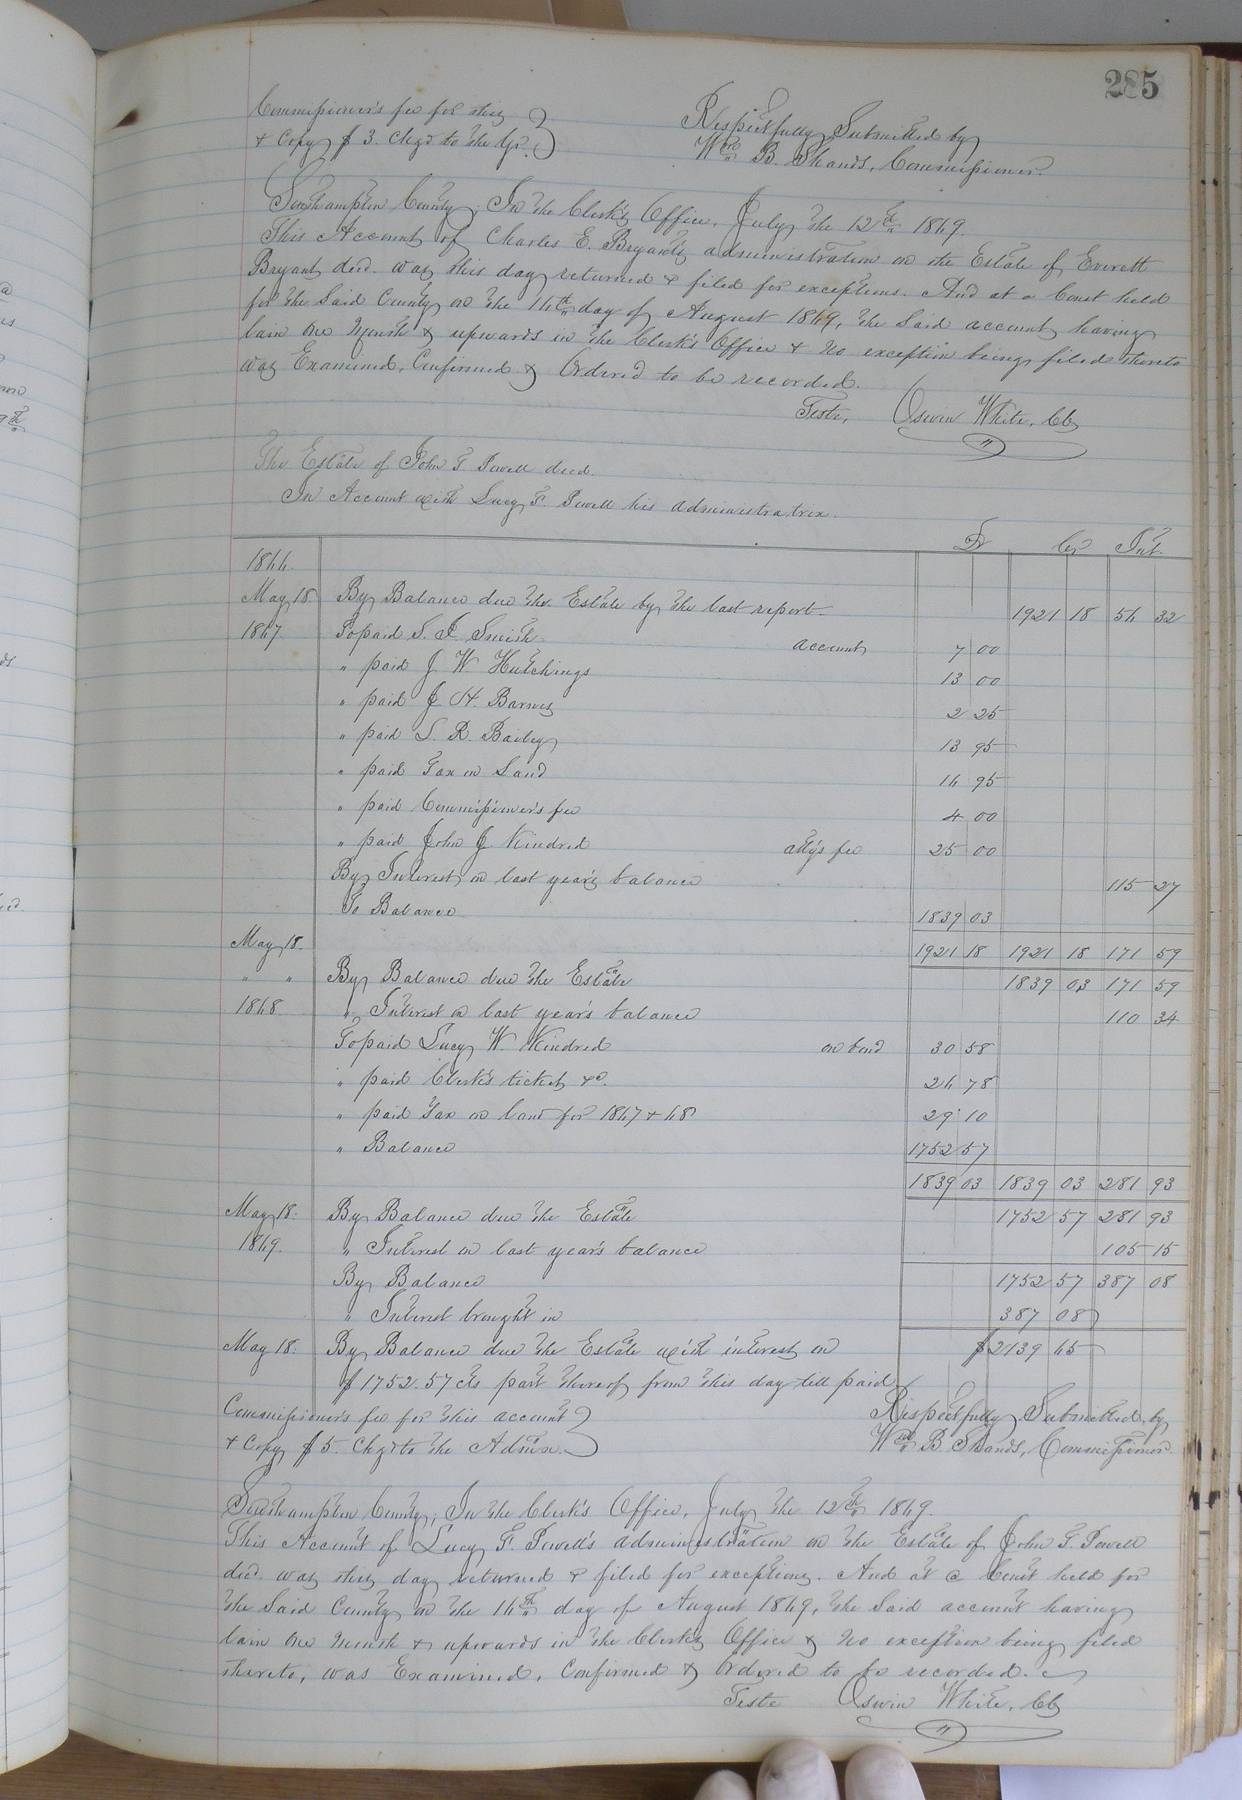 285
Commissioner's fee for this
& Copy $3. Chgd to the Gr. }
Respectfully Submitted by
Wm B. Shands, Commissioner.
Southampton County, In the Clerk's Office, July the 12th 1869.
This Account of Charles E. Bryant's administration on the Estate of Everett
Bryant decd. was this day returned & filed for exceptions. And at a Court held
for the Said County on the 16th day of August 1869, the said account having
lain one Month & upwards in the Clerk's Office & No exception being filed thereto
was Examined, Confirmed & Ordered to be recorded.
Teste, Oswin White, Clk
The Estate of John T. Powell decd.
In Account with Lucy F. Powell his administratrix.
Dr Cr Int.
1866.
May 18 By Balance due the Estate by the last report 1921 18 56 32
1867 To paid S. I. Smith account 7 00
" paid J W Hutchings 13 00
" paid J H. Barnes 2 25
" paid S. R. Bailey 13 95
" paid Tax on Land 16 95
" paid Commissioner's fee 4 00
" paid John J Kindred atty's fee 25 00
By Interest on last year's balance 115 27
To Balance 1839 03
May 18. 1921 18 1921 18 171 59
" " By Balance due the Estate 1839 03 171 59
1868. " Interest on last year's balance 110 34
To paid Lucy W. Kindred on bond 30 58
" paid Clerk's tickets &c. 26 78
" paid Tax on land for 1867 & 68 29 10
" Balance 1752 57
1839 03 1839 03 281 93
May 18. By Balance due the Estate 1752 57 281 93
1869. " Interest on last year's balance 105 15
By Balance 1752 57 387 08
" Interest brought in 387 08
May 18. By Balance due the Estate with interest on $2139 65
$1752.57 cts part thereof from this day till paid
Commissioner's fee for this account }
& Copy $5. Chgd to the Admx.
Respectfully Submitted by
Wm B. Shands, Commissioner.
Southampton County, In the Clerk's Office, July the 12th 1869.
This Account of Lucy F. Powell's administration on the Estate of John T. Powell
decd. was this day returned & filed for exceptions. And at a Court held for
the Said County on the 16th day of August 1869, the Said account having
lain one Month & upwards in the Clerk's Office & No exception being filed
thereto, was Examined, Confirmed & Ordered to be recorded.
Teste Oswin White, Clk